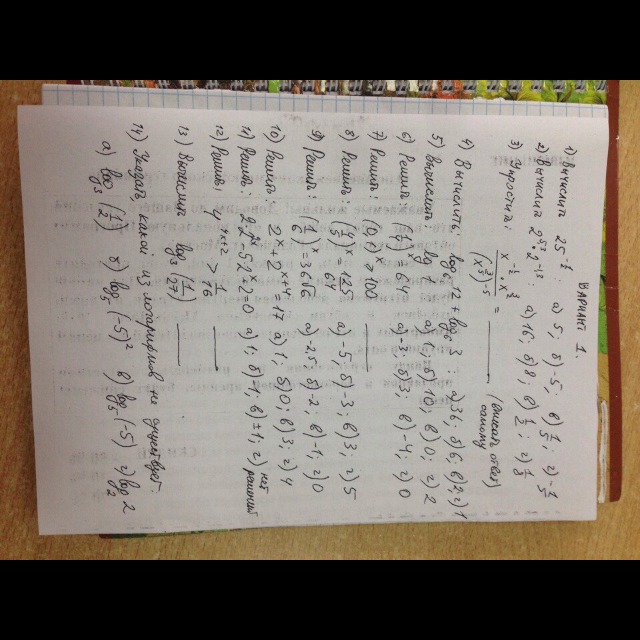 Вариант 1.
1) Вычислить 25^(-1/2) : а) 5; б) -5; в) 1/5; г) -1/5
2) Вычислить 2^9 · 2^-13 : а) 16; б) 8; в)
3) Упростить: = ______ (вписать ответ) самому
4) Вычислить: log6 12 + log6 3 : а) 36; б) 6; в) 2; г) 1
5) Вычислить: а) б) 10; в) 0; г) 2
6) Решить: = 64 а) -3; б) 3; в) -4; г) 0
7) Решить: (0,1)^x > 100 ______
8) Решить: = 125/64 а) -5; б) -3; в) 3; г) 5
9) Решить: (1/6)^x = 36√6 а) -2,5; б) -2; в) -1; г) 0
10) Решить: 2^x + 2^(x+4) = 17 а) 1; б) 0; в) 3; г) 4
11) Решить: 2·2^2x - 5·2^x + 2 = 0 а) 1; б) -1; в) ±1; г) нет решений
12) Решить: 4^(x+2) > 1/16 ______
13) Вычислить log3 (1/27) ______
14) Указать какой из логарифмов не существует:
а) log3 (1/2) б) log5 (-5)^2 в) log5 (-5) г) log2 2